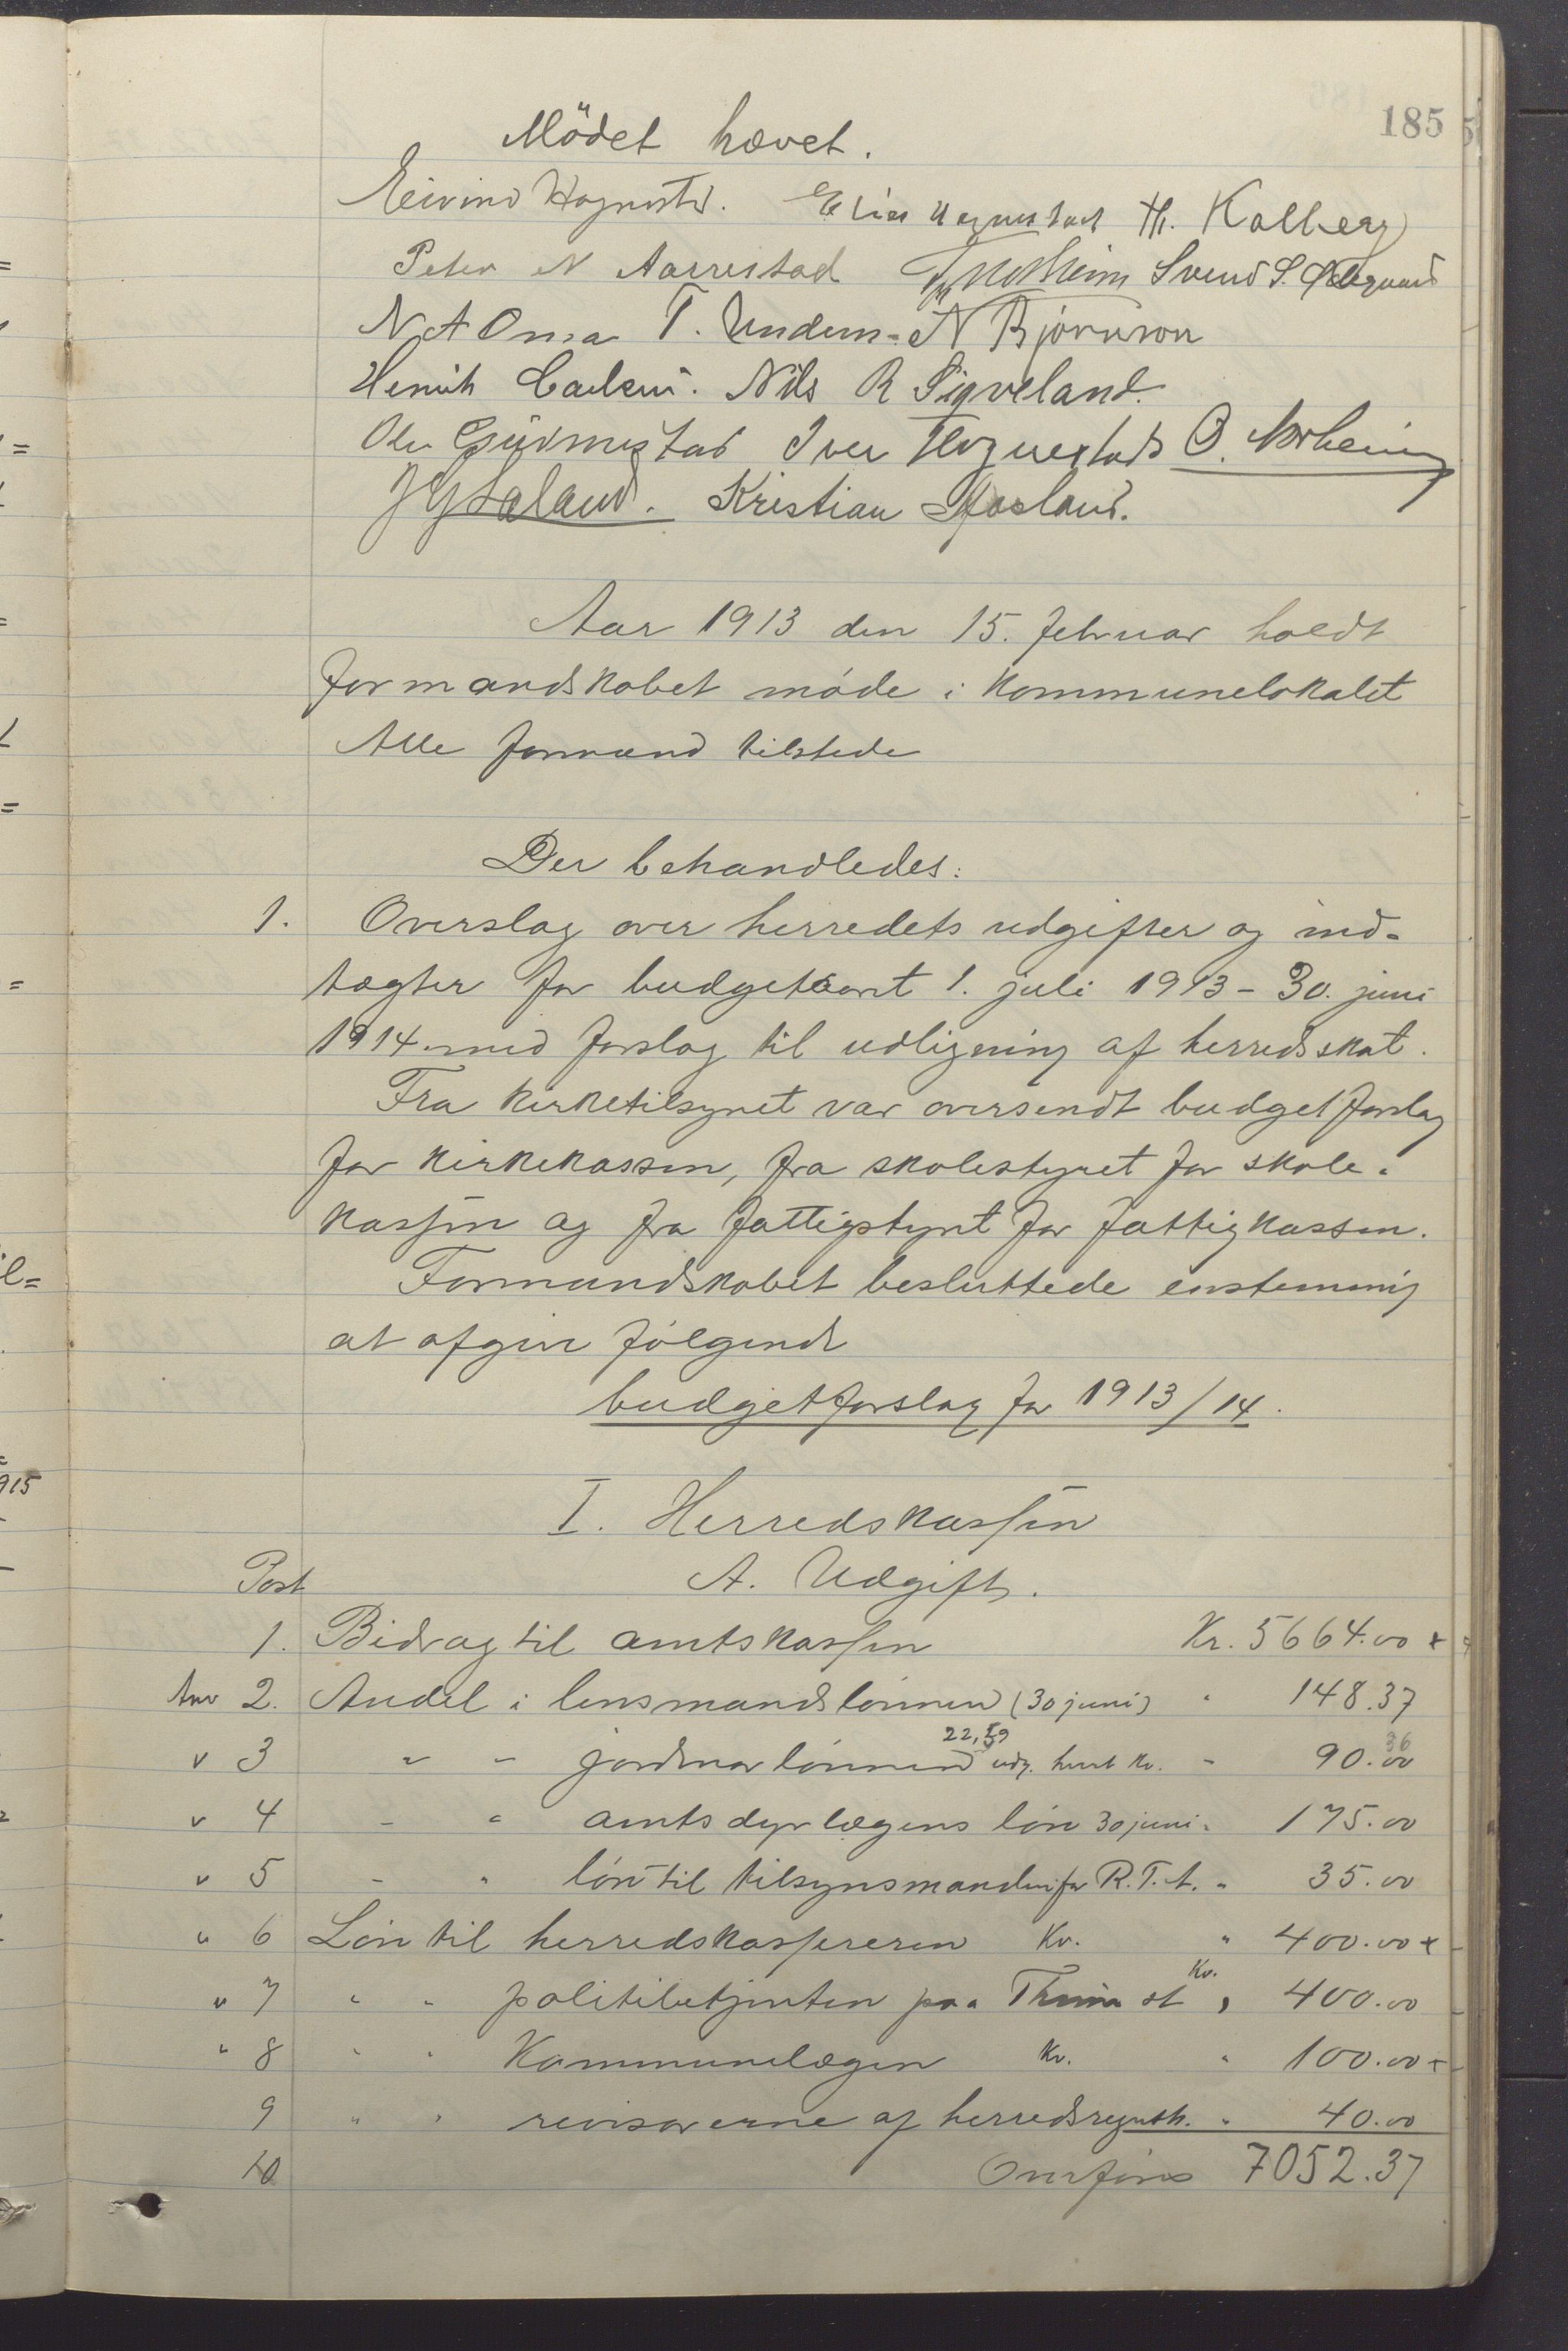 185
Mödet hævet.
Eivind Hognestd. Elias Hognestad Th. Kalberg
Peter N Aarrestad Svend S.
N A Oma T. Undem= N Bjørnson
Henrik Carlsen. Nils R Sigveland.
Ole Gudmestad Iver Hognestad O. Norheim
Kristian Aasland.
Aar 1913 den 15. februar holdt
formandskabet møde i kommunelokalet
Alle formænd tilstede
Der behandledes:
1. Overslag over herredets udgifter og ind=
tægter for budgetaaret 1. juli 1913 – 30. juni
1914 med forslag til udligning af herredsskat.
Fra kirketilsynet var oversendt budgetforslag
for kirkekassen, fra skolestyret for skole=
kassen og fra fattigstyret for fattigkassen.
Formandskabet besluttede enstemmig
at afgive følgende
budgetforslag for 1913/14.
I. Herredskassen
Post A. Udgift.
1. Bidrag til amtskassen Kr. 5664.00 +
Anv 2. Andel i lensmandslønnen (30 juni) " 148.37
22,59 36
v 3 " " jordmorlønnen udg. hvert kv. " 90.00
v 4 " " amtsdyrlægens løn 30 juni " 175.00
v 5 " " løn til tilsynsmanden for R.T.A. " 35.00
" 6 Løn til herredskassereren Kv. " 400.00 +
Kv.
" 7 " " politibetjenten paa Thime st " 400.00
" 8 " " Kommunelægen Kv. " 100.00 +
9 " " revisorerne af herredsregnsk. " 40.00
10 Overføres 7052.37